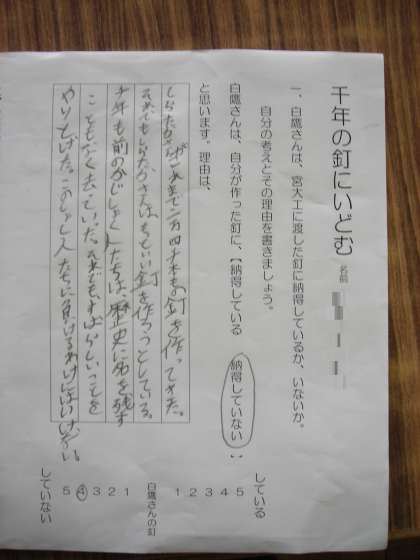 千年の釘にいどむ
名前
一、白鷹さんは、宮大工に渡した釘に納得しているか、いないか。
自分の考えとその理由を書きましょう。
白鷹さんは、自分が作った釘に、【納得している 納得していない】
と思います。理由は、
しらたかさんが今まで二万四千本もの釘を作ってきた。
それでもしらたかさんはもっといい釘を作ろうとしている。
千年も前のかじしょく人たちは、歴史に名を残す
こともなく去っていった。それでもすばらしいことを
やりとげた。このしょく人たちに負けるわけにはいけない。
している
5 4 3 2 1
白鷹さんの釘
1 2 3 4 5
していない